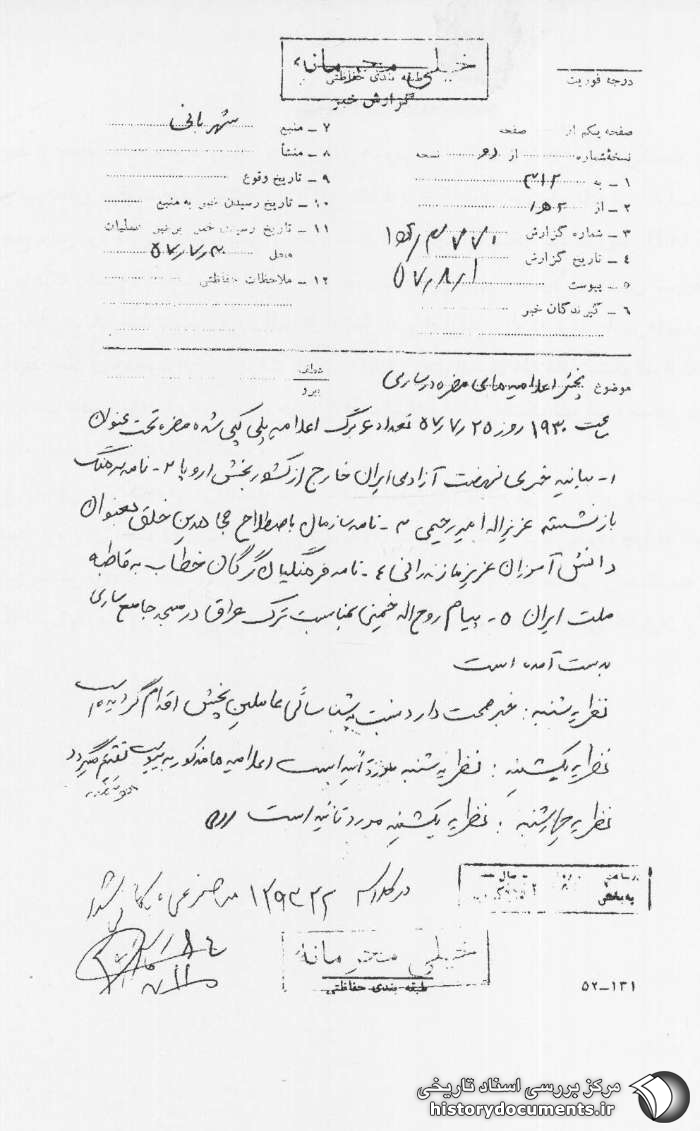 خیلی محرمانه
طبقه بندی حفاظتی
گزارش خبر
درجه فوریت
صفحه یکم از صفحه
نسخهٔ شماره از نسخه
۱ – به ۳۱۲
۲ – از
۳ – شماره گزارش
۴ – تاریخ گزارش ۵۷/۸/۱
۵ – پیوست
۶ – گیرندگان خبر
۷ – منبع شهربانی
۸ – منشأ
۹ – تاریخ وقوع
۱۰ – تاریخ رسیدن خبر به منبع
۱۱ – تاریخ رسیدن خبر برهبر عملیات
محل
۱۲ – ملاحظات حفاظتی
موضوع پخش اعلامیه های مضره در ساری
عطف
پیرو
ساعت ۱۹۳۰ روز ۵۷/۷/۲۵ تعداد ۶ برگ اعلامیه پلی کپی شده مضره تحت عنوان
۱- بیانیه خبری نهضت آزادی ایران خارج از کشور بخش اروپا ۲- نامه سرهنگ
بازنشسته عزیزاله امیررحیمی ۳- نامه سازمان باصطلاح مجاهدین خلق بعنوان
دانش آموزان عزیز مازندرانی ۴- نامه فرهنگیان گرگان خطاب به قاطبه
ملت ایران ۵- پیام روح اله خمینی بمناسبت ترک عراق در مسجد جامع ساری
بدست آمده است
نظریه شنبه : خبر صحت دارد نسبت به شناسائی عاملین پخش اقدام گردیده است
نظریه یکشنبه : نظریه شنبه مورد تائید است اعلامیه ها مذکور به پیوست تقدیم میگردد
نظریه چهارشنبه : نظریه یکشنبه مورد تائید است
در کلاسه ۱۲۹۳۲۳
خیلی محرمانه
طبقه بندی حفاظتی
۵۲–۱۳۱
مرکز بررسی اسناد تاریخی
historydocuments.ir